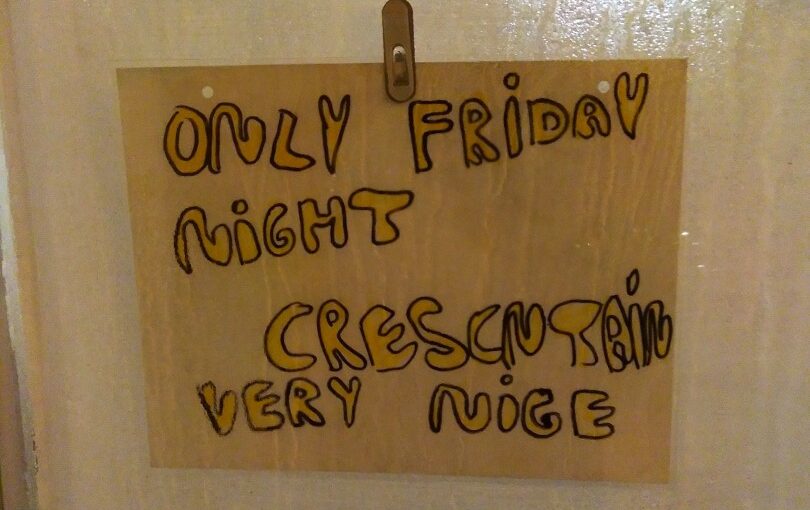 ONLY FRiDAY
NiGHT
CRESCNTAiN
VERY NiCE